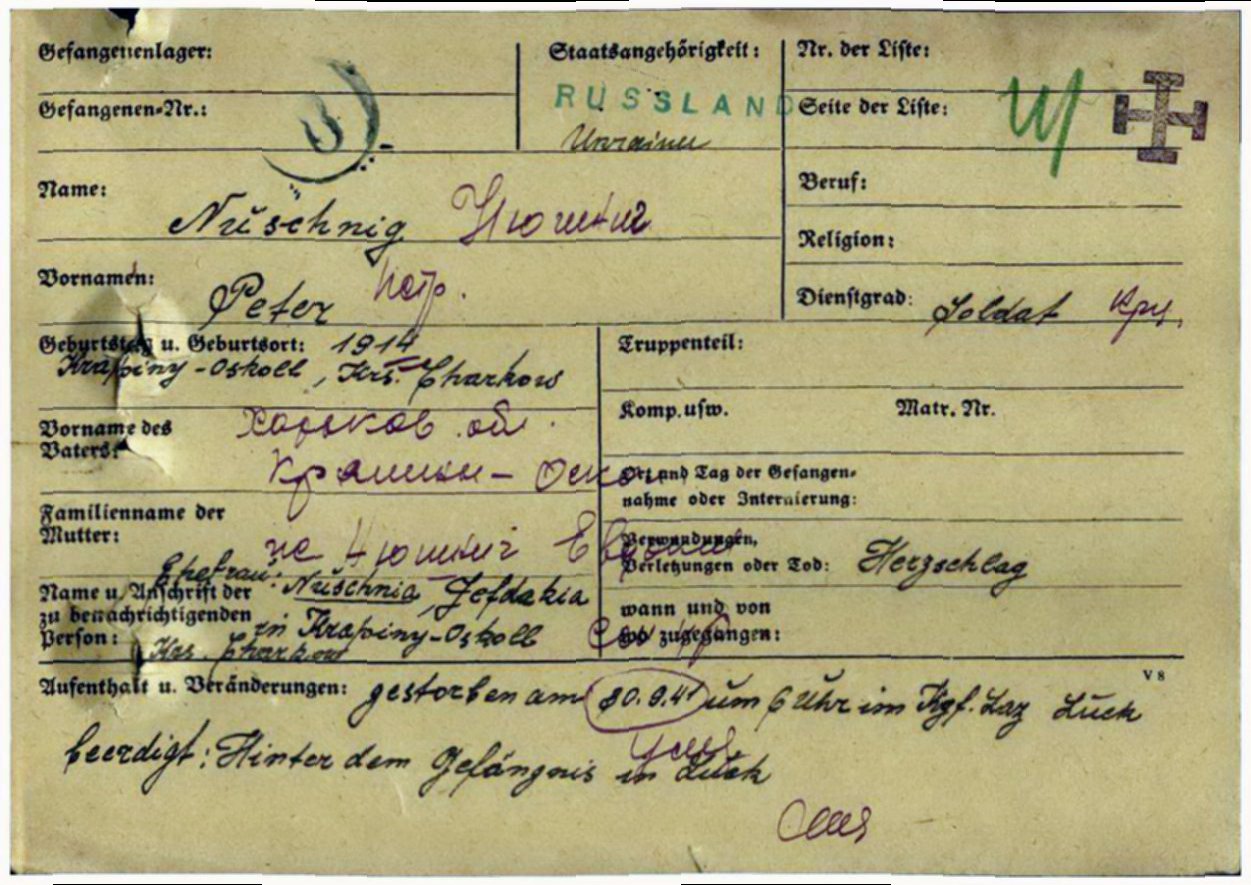 Gefangenenlager:
Staatsangehörigkeit:
Nr. der Liste:
RUSSLAND
Gefangenen-Nr.:
Seite der Liste:
Ukrainer
Name:
Beruf:
Nüschnig
Religion:
Vornamen:
Peter Петр.
Dienstgrad: Soldat Кр.
Geburtstag u. Geburtsort: 1914
Truppenteil:
Krapiny-Oskoll, Krs. Charkow
Komp. usw. Matr. Nr.
Vorname des
Vaters:
Харьков. об.
Ort und Tag der Gefangen-
nahme oder Internierung:
Familienname der
Mutter:
Verwundungen,
Verletzungen oder Tod: Herzschlag
Ehefrau: Nüschnia, Jefdakia
Name u. Anschrift der
zu benachrichtigenden
Person:
in Krapiny-Oskoll
Krs. Charkow
wann und von
wo zugegangen:
V 8
Aufenthalt u. Veränderungen: gestorben am 30.9.41 um 6 Uhr im Kgf. Laz Luck
beerdigt: Hinter dem Gefängnis in Luck